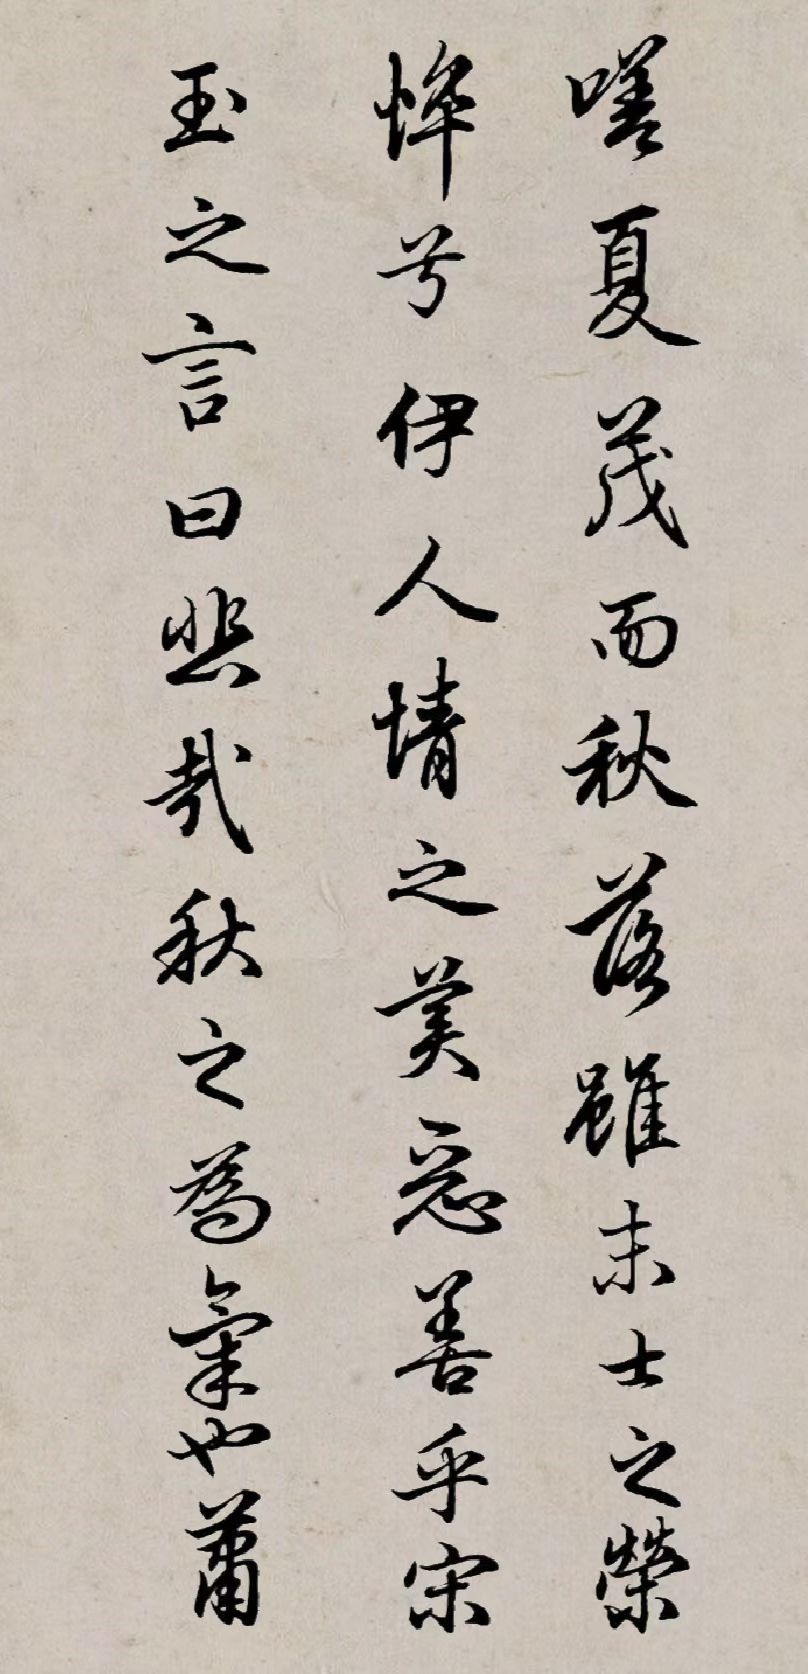 嗟夏茂而秋落雖末士之榮
悴兮伊人情之美惡善乎宋
玉之言曰悲哉秋之為氣也蕭